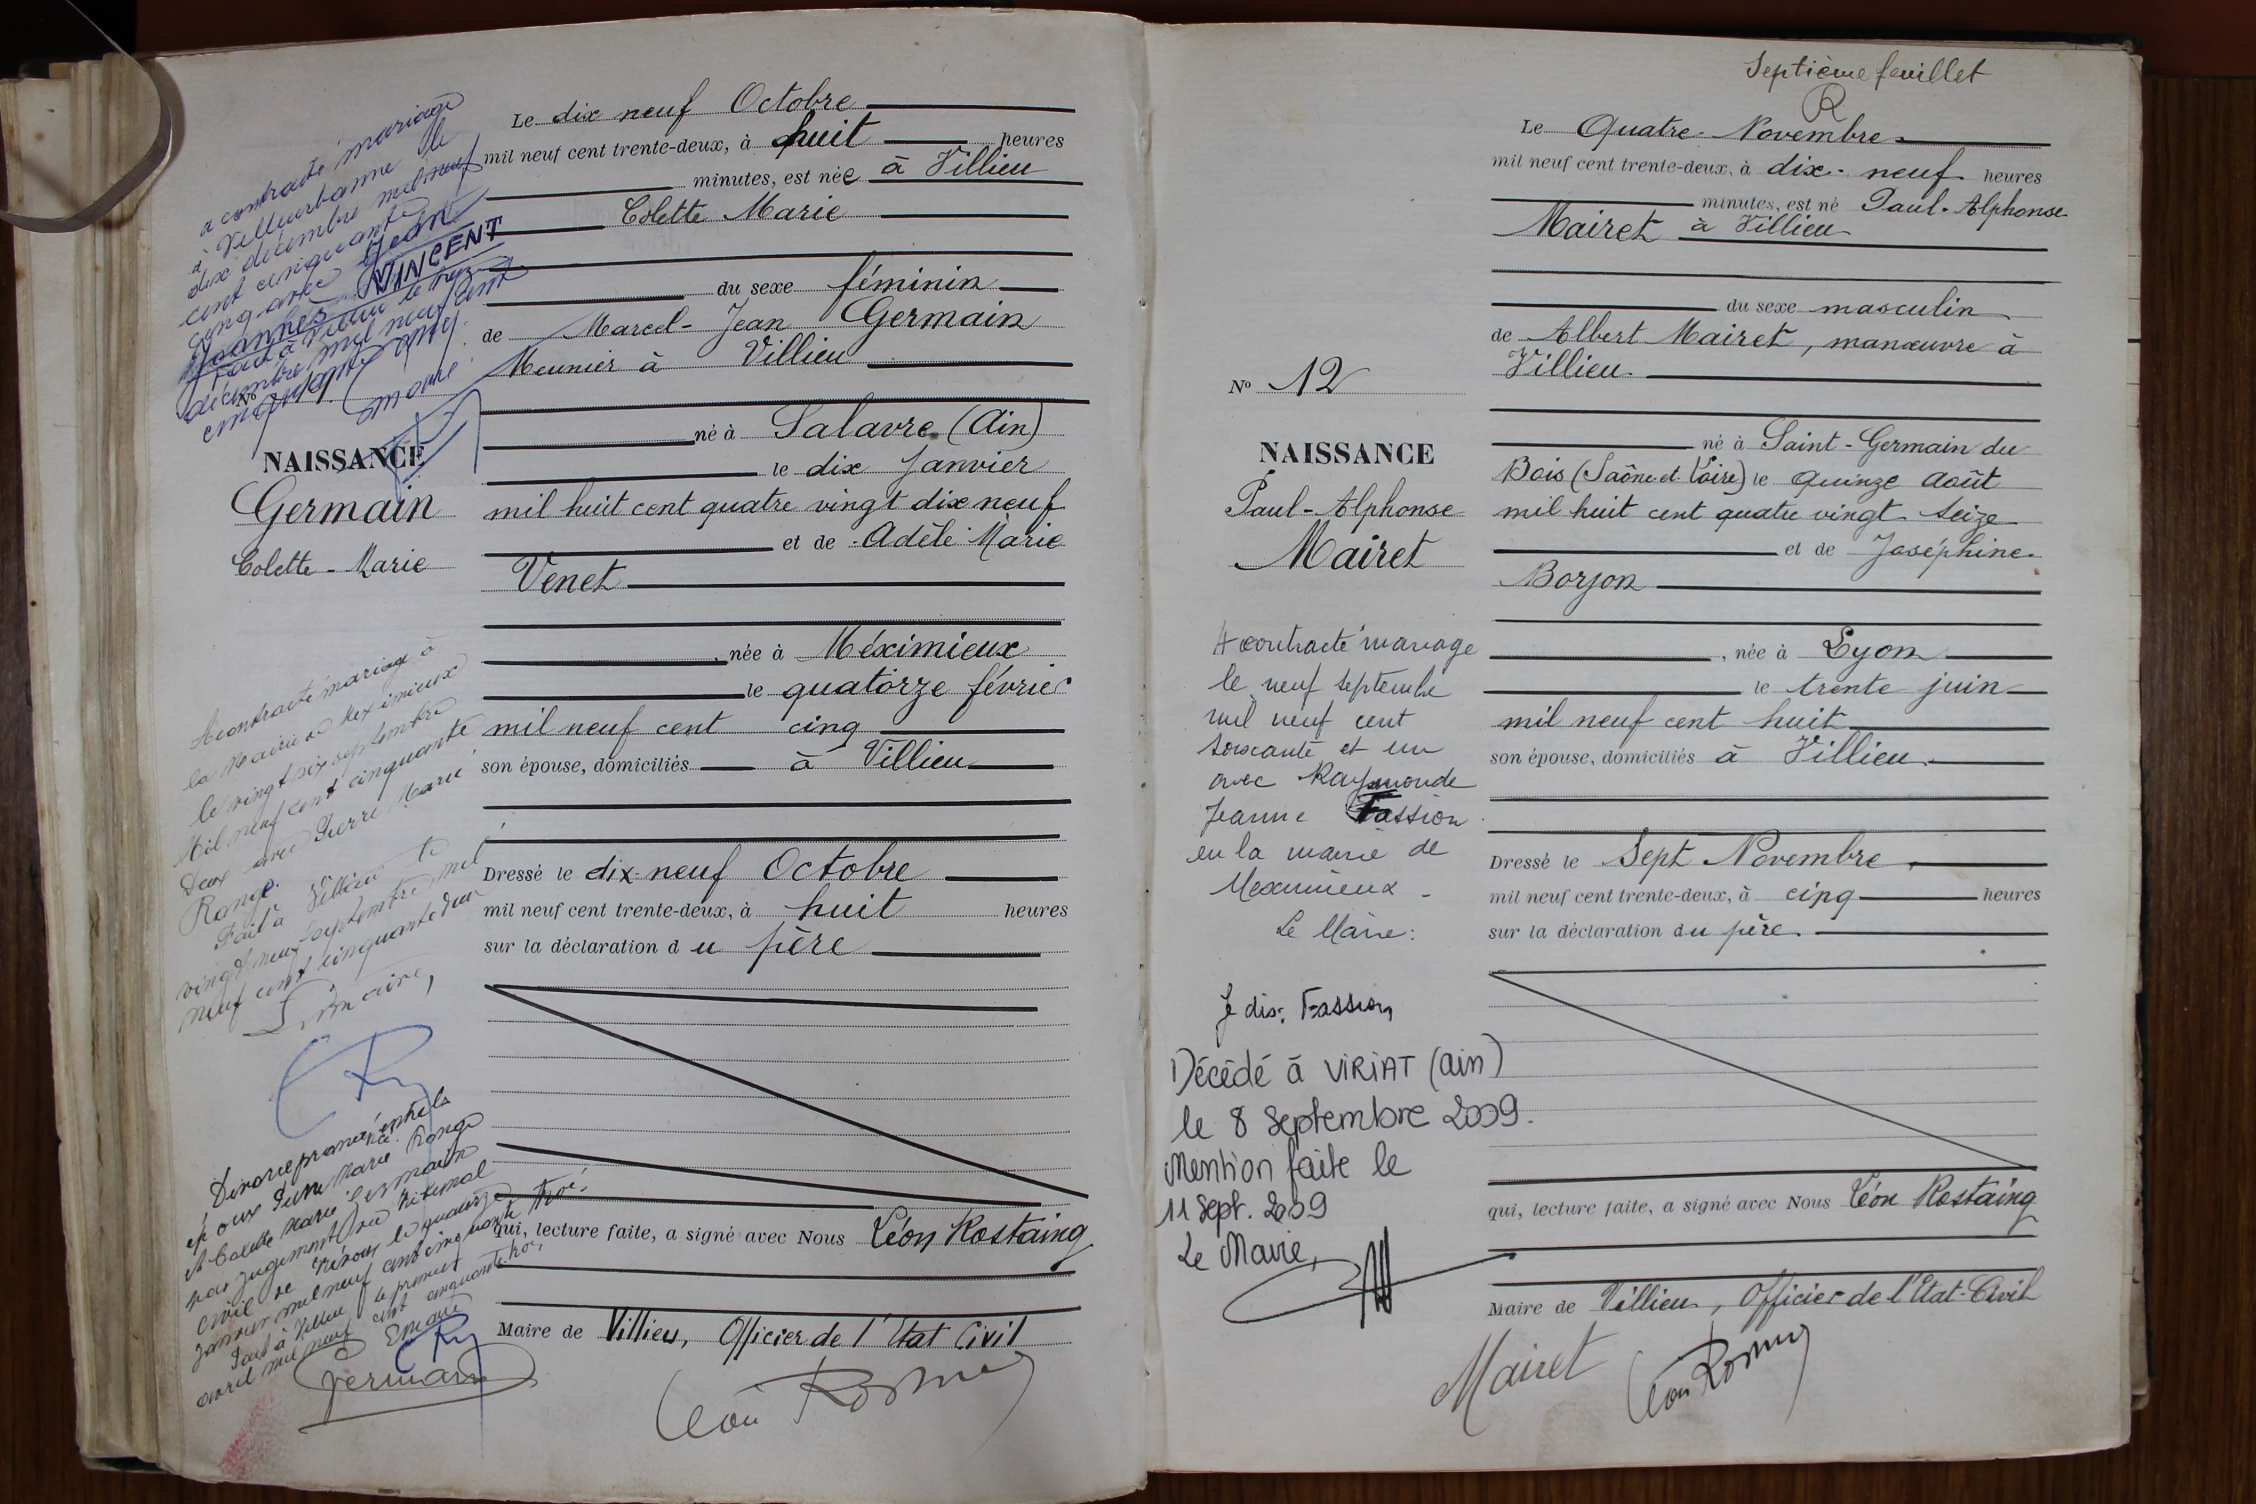 a contracté mariage
à Villeurbanne le
dix décembre mil neuf
cent cinquante
cinq avec Jean
Joannès VINCENT
Fait à Villieu le
décembre mil neuf cent
cinquante cinq.
Le dix neuf Octobre
mil neuf cent trente-deux, à huit heures
minutes, est née à Villieu
Colette Marie
du sexe féminin
de Marcel-Jean Germain
Meunier à Villieu
né à Salavre (Ain)
le dix Janvier
mil huit cent quatre vingt dix neuf
et de Adèle Marie
Venet
, née à Méximieux
le quatorze février
mil neuf cent cinq
son épouse, domiciliés à Villieu
Dressé le dix-neuf Octobre
mil neuf cent trente-deux, à huit heures
sur la déclaration du père
qui, lecture faite, a signé avec Nous Léon Rostaing
Maire de Villieu, Officier de l'Etat Civil
NAISSANCE
Germain
Colette-Marie
A contracté mariage à
la Mairie de Meximieux
le vingt six septembre
Mil neuf cent cinquante
Deux avec Pierre Marie
Rongé.
Fait à Villieu le
vingt neuf septembre mil
neuf cent cinquante deux
Le Maire,
Divorce prononcé entre les
époux Pierre Marie Rongé
et Colette Marie Germain
par jugement du tribunal
civil de Trévoux le quatorze
janvier mil neuf cent cinquante trois.
Fait à Villieu le premier
avril mil neuf cent cinquante trois
Germain
Septième feuillet
R
Le Quatre Novembre
mil neuf cent trente-deux, à dix-neuf heures
minutes, est né Paul-Alphonse
Mairet à Villieu
du sexe masculin
de Albert Mairet, manœuvre à
Villieu
né à Saint-Germain du
Bois (Saône et Loire) le quinze Août
mil huit cent quatre vingt seize
et de Joséphine
Borjon
, née à Lyon
le trente juin
mil neuf cent huit
son épouse, domiciliés à Villieu
Dressé le Sept Novembre
mil neuf cent trente-deux, à cinq heures
sur la déclaration du père.
qui, lecture faite, a signé avec Nous Léon Rostaing
Maire de Villieu, Officier de l'Etat-Civil
Mairet
No 12
NAISSANCE
Paul-Alphonse
Mairet
A contracté mariage
le neuf septembre
mil neuf cent
soixante et un
avec Raymonde
Jeanne Fassion
en la mairie de
Meximieux
Le Maire:
Je dis: Fassion
Décédé à VIRIAT (ain)
le 8 Septembre 2009.
Mention faite le
11 Sept. 2009
Le Maire,